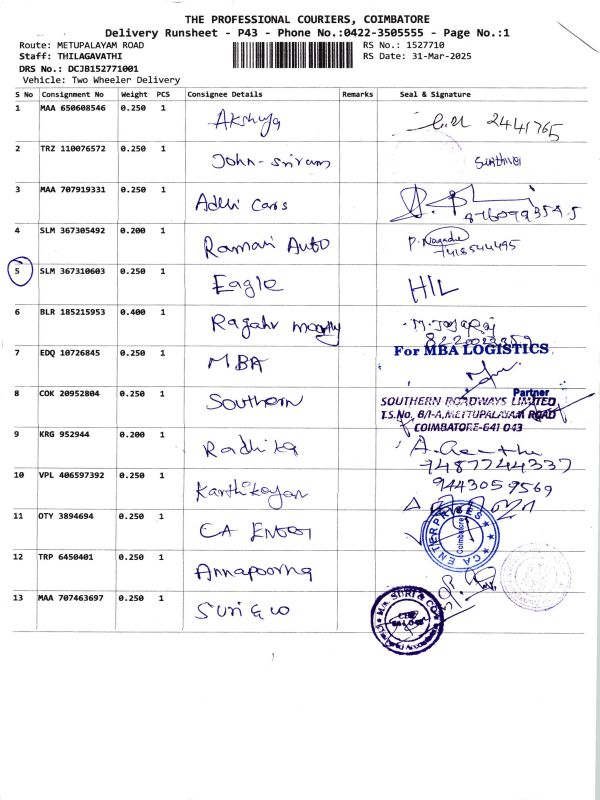 THE PROFESSIONAL COURIERS, COIMBATORE
Delivery Runsheet - P43 - Phone No.:0422-3505555 - Page No.:1
Route: METUPALAYAM ROAD
RS No.: 1527710
Staff: THILAGAVATHI
RS Date: 31-Mar-2025
DRS No.: DCJB152771001
Vehicle: Two Wheeler Delivery
S No Consignment No Weight PCS Consignee Details Remarks Seal & Signature
1 MAA 650608546 0.250 1 Akshya 2441765
2 TRZ 110076572 0.250 1 John-sriram
3 MAA 707919331 0.250 1 Adhi Cars
4 SLM 367305492 0.200 1 Ramani Auto
7418544495
5 SLM 367310603 0.250 1 Eagle HIL
6 BLR 185215953 0.400 1
7 EDQ 10726845 0.250 1 MBA For MBA LOGISTICS
Partner
8 COK 20952804 0.250 1 Southern SOUTHERN ROADWAYS LIMITED
T.S.No. 8/1-A, METTUPALAYAM ROAD
COIMBATORE-641 043
9 KRG 952944 0.200 1 Radhika
7487744337
10 VPL 406597392 0.250 1 Karthikeyan 9443059569
11 OTY 3894694 0.250 1 CA Enter CA ENTERPRISES Coimbatore
12 TRP 6450401 0.250 1 Annapoorna
13 MAA 707463697 0.250 1 Suri & co M/s. SURI & CO. Chartered Accountants